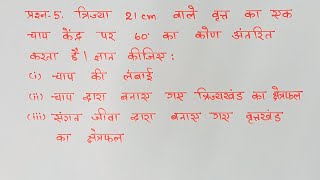 प्रश्न-5: त्रिज्या 21cm वाले वृत्त का एक
चाप केंद्र पर 60° का कोण अंतरित
करता है। ज्ञात कीजिए :
(i) चाप की लंबाई
(ii) चाप द्वारा बनाए गए त्रिज्यखंड का क्षेत्रफल
(iii) संगत जीवा द्वारा बनाए गए वृत्तखंड
का क्षेत्रफल